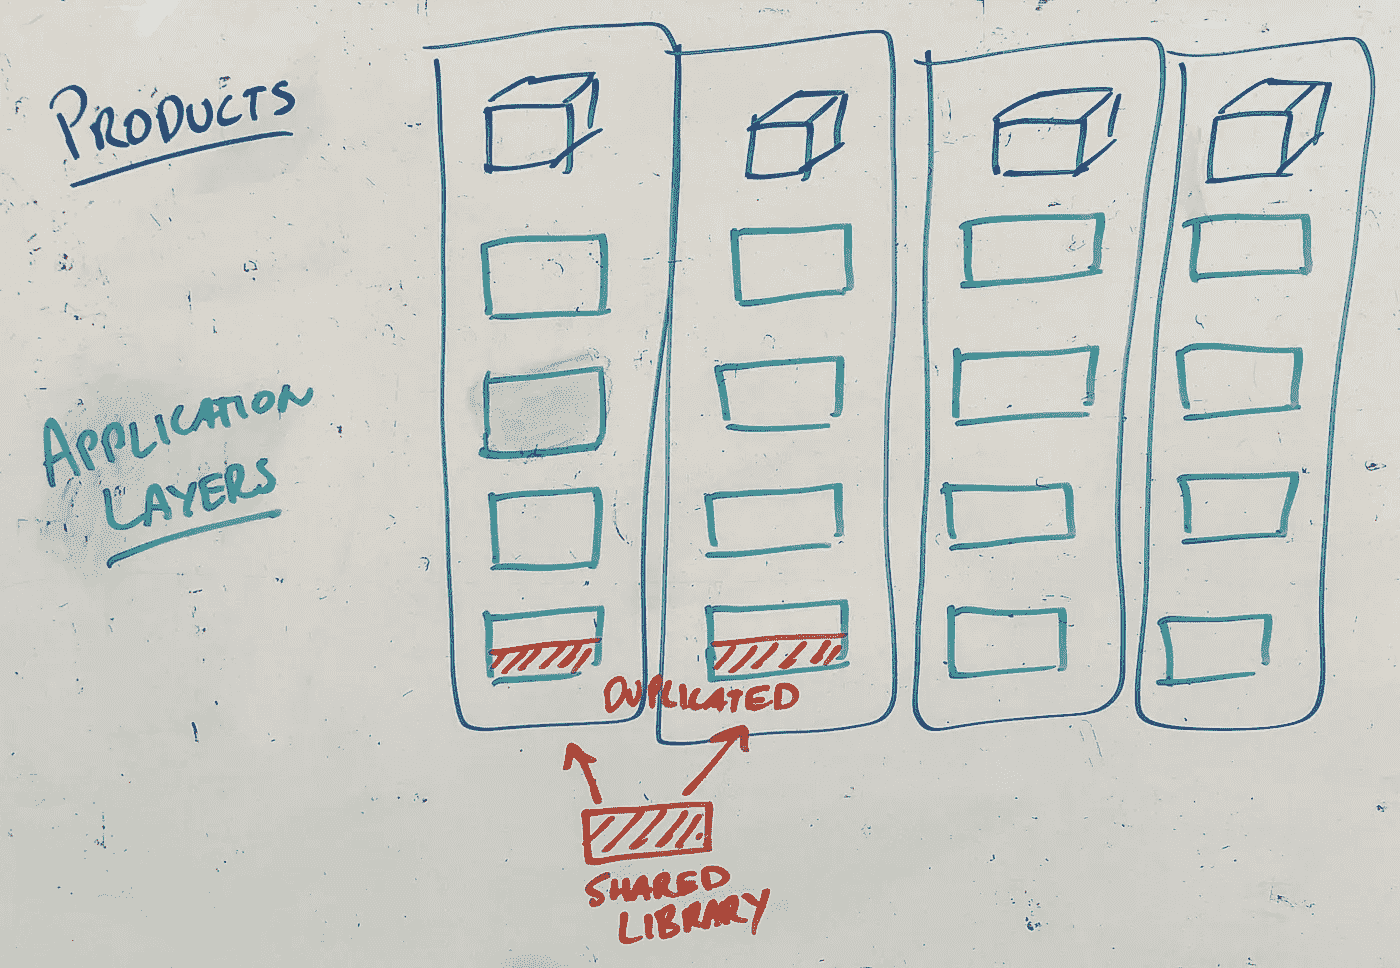 PRODUCTS
APPLICATION
LAYERS
DUPLICATED
SHARED
LIBRARY